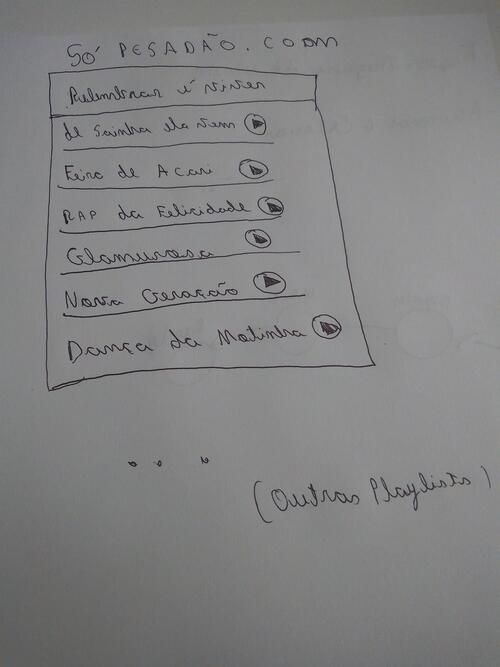 SÓ PESADÃO.COM
Relembrar é viver
de Sainha ela vem
Feira de Acari
RAP da Felicidade
Glamurosa
Nova Geração
Dança da Motinha
...
(Outras Playlists)